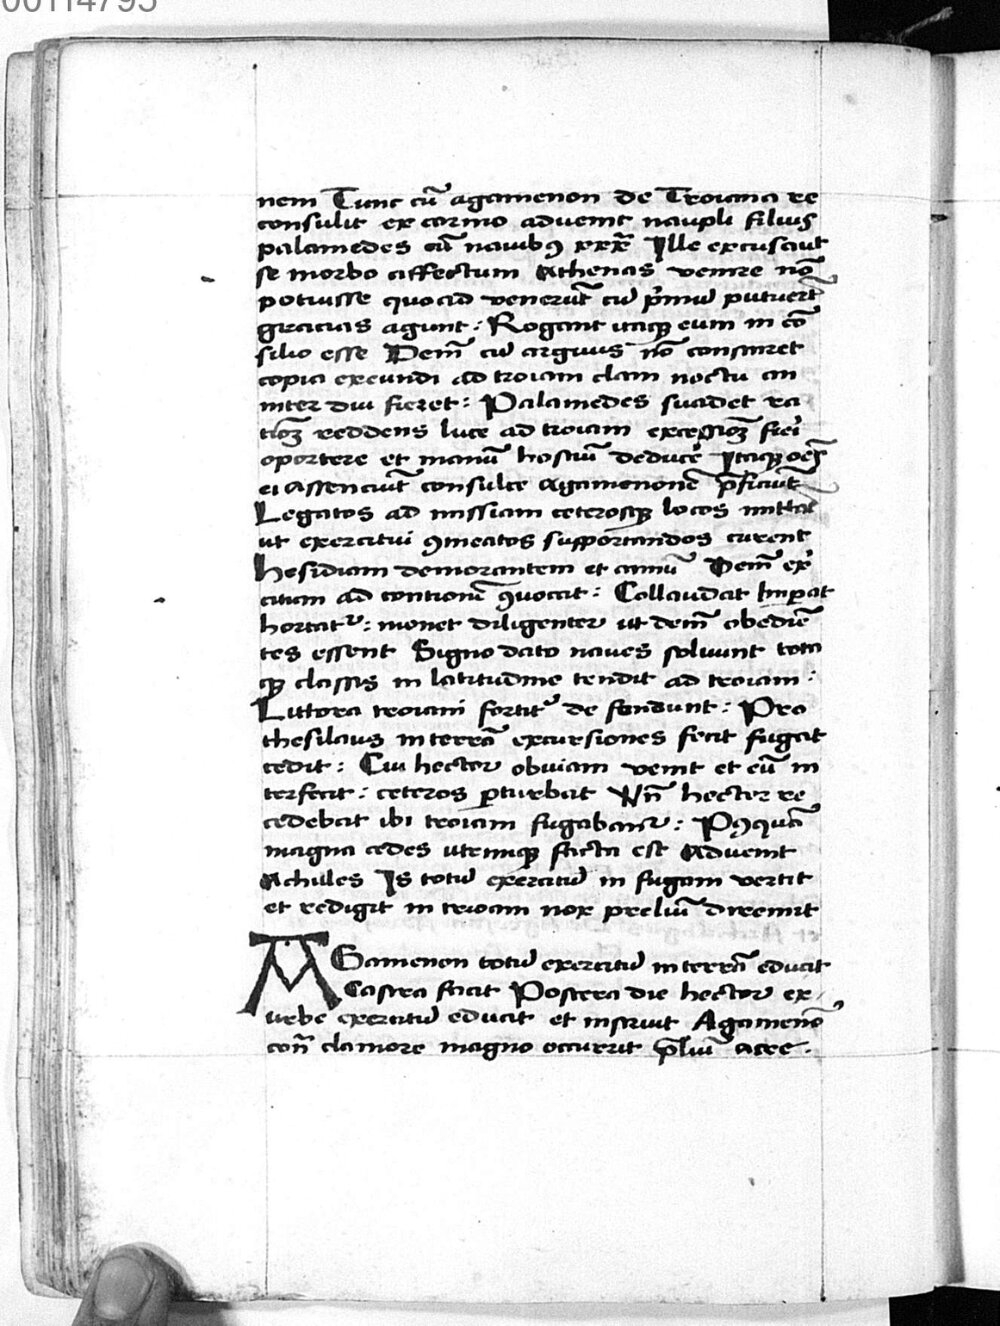 00114795
nem Tunc cū agamenon de Troiana re
consulit ex cormo aduenit naupli filius
palamedes cū nauibꝯ xxx Ille excusauit
se morbo affectum Athenas venire nō
potuisse quo ad venerūt cū pͥmū putuerūt
gracias agunt : Rogant itaqꝫ eum in cō
silio esse Dem̄ cū arguus nō constaret
copia exeundi ad troiam clam noctu an
inter diu fieret : Palamedes suadet ra
tiōꝫ reddens luce ad troiam excessioꝫ fieri
oportere et manū hostiū deducē Itaqꝫ oēs
ei assenciūt consulte Agamenonē p̄ficiūt
Legatos ad missiam ceterosqꝫ locos mittat
ut exercitui ꝯmeatos supportandos curent
hesidiam demorantem et amū Dem̄ exer
citum ad contionē ꝯuocat : Collaudat Imperat
hortatᷣ : monet diligenter ut dem̄ obediē
tes essent Signo dato naues soluunt tota
qꝫ classis in latitudine tendit ad troiam :
Littora troiani fortitᷣ de fendunt : Pro
thesilaus in terrā excursiones fecit fugat
cedit : Cui hector obuiam venit et eū in
terfecit : ceteros ꝑturbat Vn̄ hector re
cedebat ibi troiam fugabantᷣ : Pꝯquā
magna cedes utrimqꝫ facta est Aduenit
Achilles Is totū exercitū in fugam vertit
et redigit in troiam nox preliū diremit
AGamenon totū exercitū in terrā educit
Castra facit Postera die hector ex
urbe exercitū educit et instruit Agamenō
con̄ clamore magno occurrit p̄liū acre .